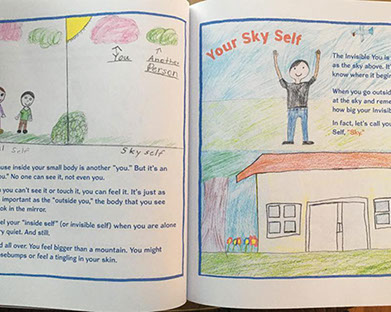 You
Another
Person
Self
Sky self
use inside your small body is another "you." But it's an
ou." No one can see it, not even you.
you can't see it or touch it, you can feel it. It's just as
important as the "outside you," the body that you see
ook in the mirror.
el your "inside self" (or invisible self) when you are alone
ry quiet. And still.
d all over. You feel bigger than a mountain. You might
sebumps or feel a tingling in your skin.
Your Sky Self
The Invisible You is
as the sky above. It'
know where it begin
When you go outside
at the sky and reme
how big your Invisib
In fact, let's call you
Self, "Sky."